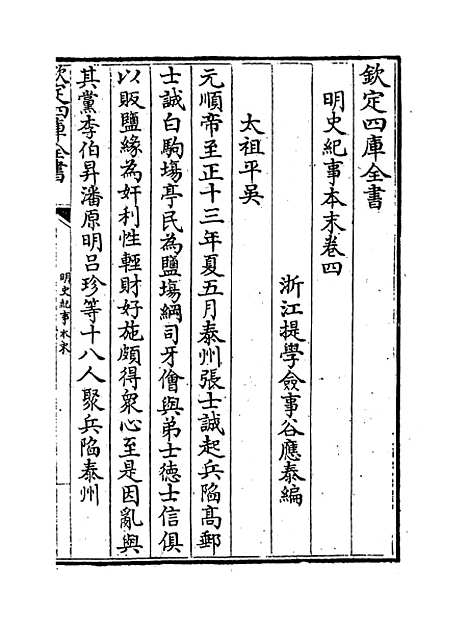 欽定四庫全書
明史紀事本末卷四
浙江提學僉事谷應泰編
太祖平吳
元順帝至正十三年夏五月泰州張士誠起兵陷髙郵
士誠白駒塲亭民為鹽塲綱司牙儈與弟士徳士信俱
以販鹽緣為奸利性輕財好施頗得衆心至是因亂與
其黨李伯昇潘原明吕珍等十八人聚兵陷泰州
欽定四庫全書
明史紀事本末